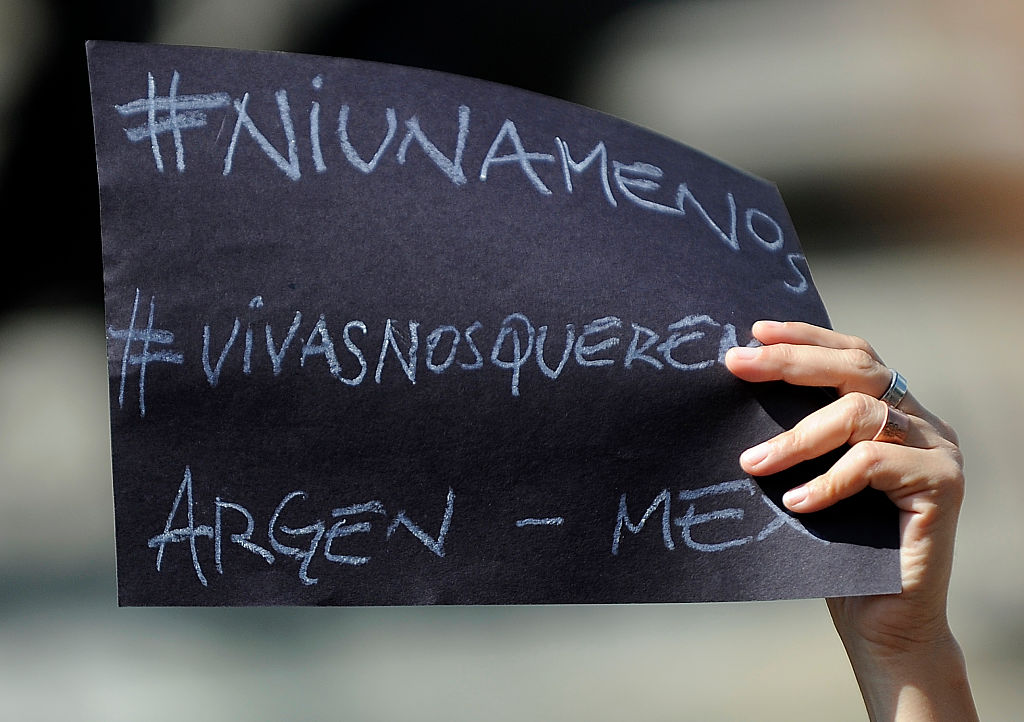 #NiUNAMENOS
#ViVASNOSQUEREN
ARGEN - MEX